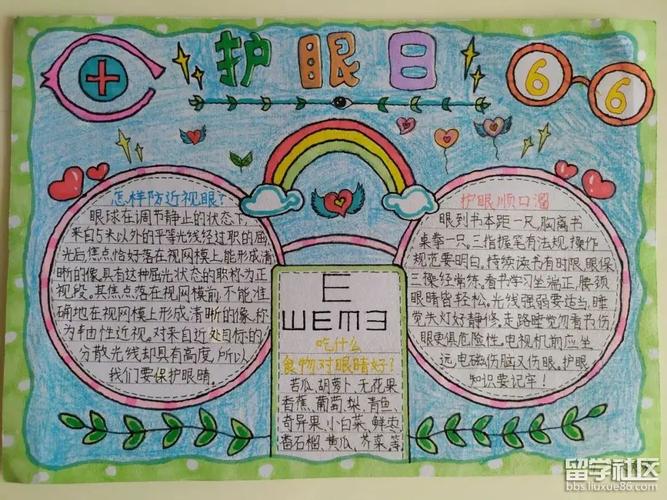 护眼日
6 6
怎样防近视眼?
眼球在调节静止的状态下,
来自5米以外的平等光线经过眼的屈
光后焦点恰好落在视网模上,能形成清
晰的像具有这种屈光状态的眼称为正
视段。其焦点落在视网模前不能准
确地在视网模上形成清晰的像,称
为轴性近视。对来自近处目标的
分散光线却具有高度,所以
我们要保护眼睛。
E
ШEMΞ
吃什么
食物对眼睛好?
苦瓜,胡萝卜,无花果
香蕉、葡萄,梨、青鱼、
奇异果、小白菜、鲜枣
番石榴、黄瓜、芥菜,等
护眼顺口溜
眼到书本距一尺,胸离书
桌拳一只。三指握笔有法规,操作
规范要明白。持续读书有时限,眼保
三操经常练。看书学习坐端正,腰颈
眼睛皆轻松。光线强弱要适当,睡
觉关灯好静修。走路睡觉勿看书,伤
眼更俱危险性。电视机前应坐
远,电磁伤脑又伤眼。护眼
知识要记牢!
留学社区
bbs.liuxue86.com